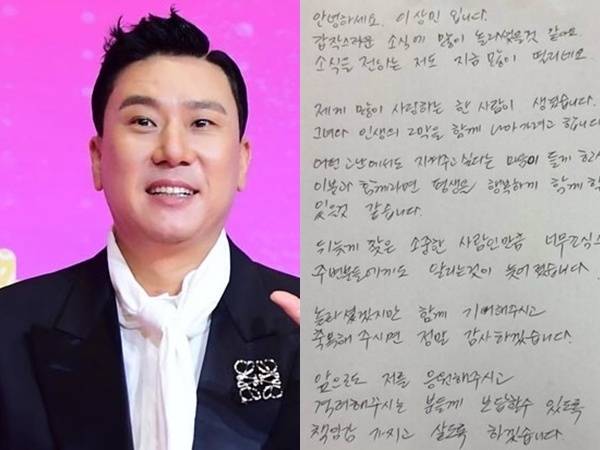 안녕하세요. 이상민 입니다.
갑작스러운 소식에 많이 놀라셨을것 같아요.
소식을 전하는 저도 지금 많이 떨리네요.
제게 많이 사랑하는 한 사람이 생겼습니다.
그녀와 인생의 2막을 함께 나아가려고 합니다.
어떤 고난에서도 지켜주고 싶다는 마음이 들게 하고
이분과 함께라면 평생을 행복하게 함께 할
있을것 같습니다.
뒤늦게 찾은 소중한 사람인만큼 너무 조심스
주변분들에게도 알리는것이 늦어졌습니다
놀라셨겠지만 함께 기뻐해주시고
축복해 주시면 정말 감사하겠습니다.
앞으로도 저를 응원해주시고
격려해주시는 분들께 보답할수 있도록
책임감 가지고 살도록 하겠습니다.